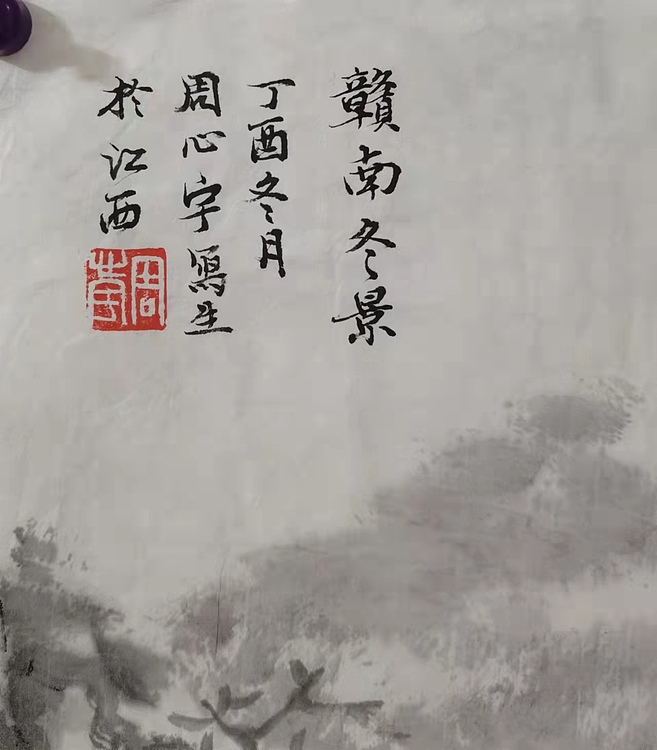 贛南冬景
丁酉冬月
周心宇寫生
於江西
周